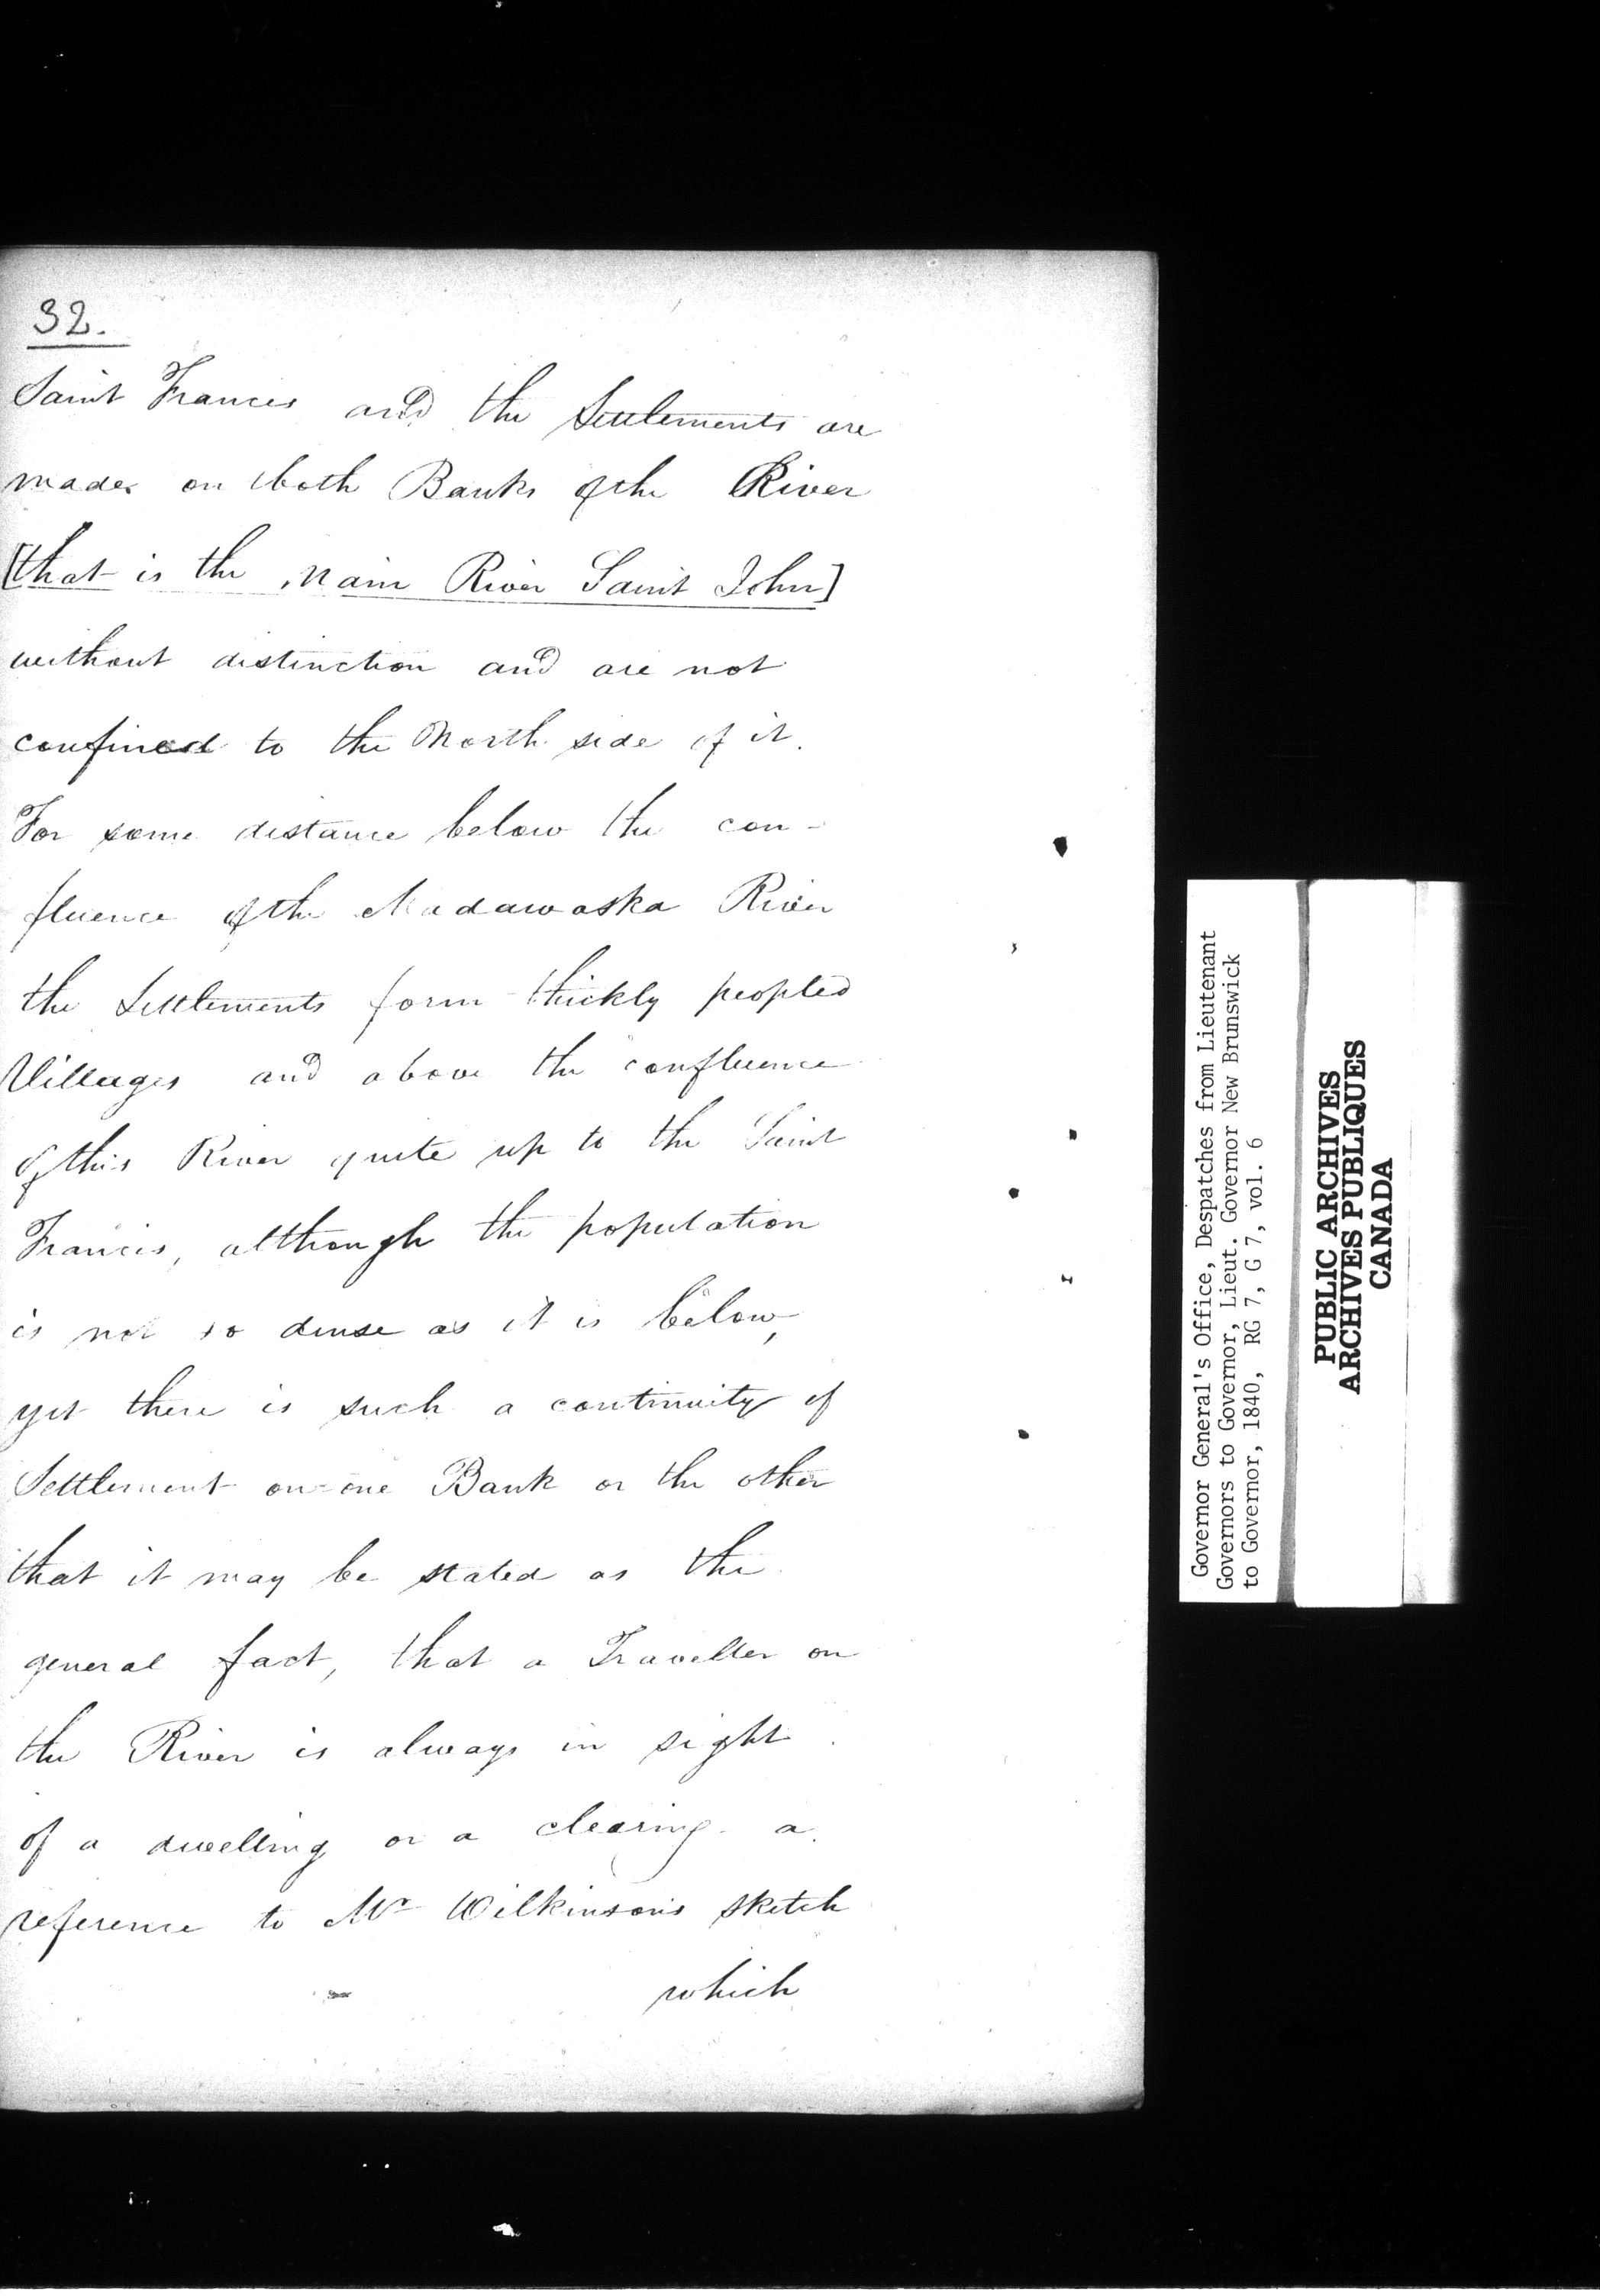 32.
Saint Francis and the Settlements are
made on both Banks of the River
[that is the main River Saint John]
without distinction and are not
confined to the North side of it.
For some distance below the con-
fluence of the Madawaska River
the Settlements form thickly peopled
Villages and above the confluence
of this River quite up to the Saint
Francis, although the population
is not so dense as it is below,
yet there is such a continuity of
Settlement on one Bank or the other
that it may be stated as the
general fact, that a Traveller on
the River is always in sight
of a dwelling or a clearing. a
reference to Mr Wilkinson's sketch
which
Governor General's Office, Despatches from Lieutenant
Governors to Governor, Lieut. Governor New Brunswick
to Governor, 1840, RG 7, G 7, vol. 6
PUBLIC ARCHIVES
ARCHIVES PUBLIQUES
CANADA